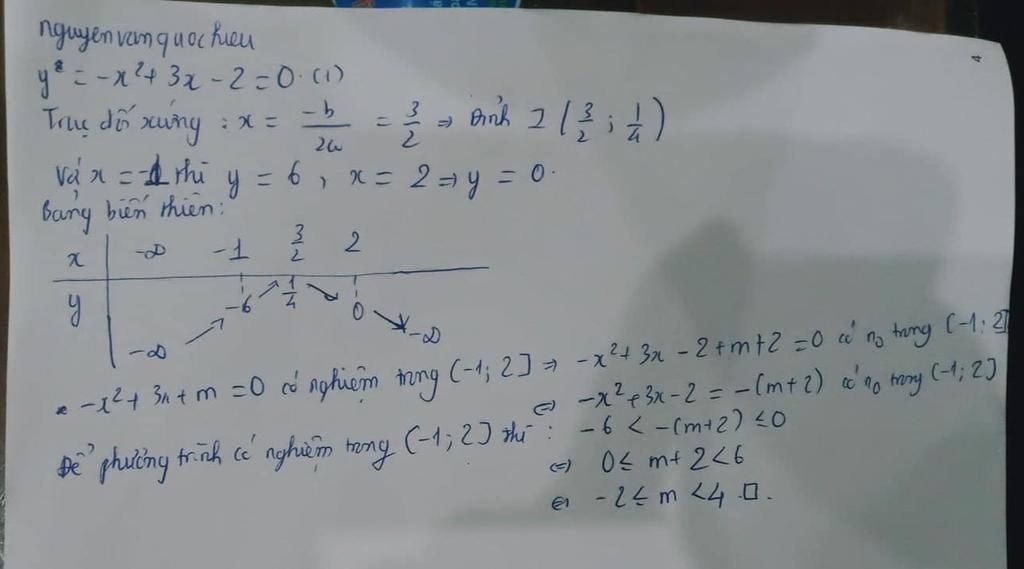 nguyenvanquochieu
y = -x² + 3x - 2 = 0. (1)
Trục đối xứng : x = -b/2a = 3/2 ⇒ Đỉnh I (3/2 ; 1/4)
Và x = -1 thì y = 6 , x = 2 ⇒ y = 0.
Bảng biến thiên:
x | -∞ -1 3/2 2
y | -∞ ↗ -6 ↗ 1/4 ↘ 0 ↘ -∞
-x² + 3x + m = 0 có nghiệm trong (-1; 2] ⇒ -x² + 3x - 2 + m + 2 = 0 có n₀ trong (-1; 2]
⇔ -x² + 3x - 2 = -(m+2) có n₀ trong (-1; 2]
Để phương trình có nghiệm trong (-1; 2] thì : -6 < -(m+2) ≤ 0
⇔ 0 ≤ m + 2 < 6
⇔ -2 ≤ m < 4 □.
4